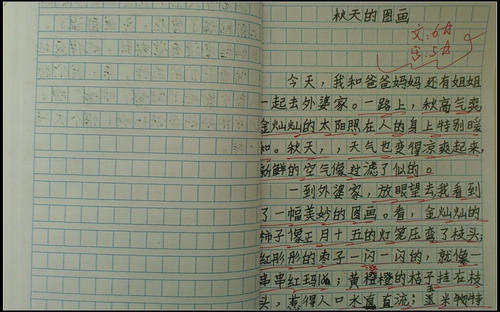 秋天的图画
文:6分
字:5分
今天，我和爸爸妈妈还有姐姐
一起去外婆家。一路上，秋高气爽
金灿灿的太阳照在人的身上特别暖
和。秋天，，天气也变得凉爽起来，
新鲜的空气像过滤了似的。
一到外婆家，放眼望去我看到
了一幅美妙的图画。看，金灿灿的
柿子像正月十五的灯笼压弯了枝头;
红彤彤的枣子一闪一闪的，就像一
串串红玛瑙；黄橙橙的桔子挂在枝
头，惹得人口水直流；玉米